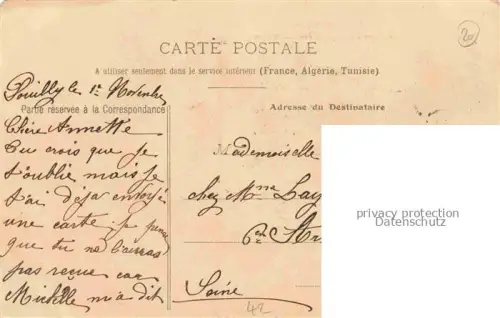 20
CARTE POSTALE
A utiliser seulement dans le service intérieur (France, Algérie, Tunisie)
Pouilly le 1er Novembre
Partie réservée à la Correspondance
Adresse du Destinataire
Chère Annette
Tu crois que je
t'oublie mais je
t'ai déjà envoyé
une carte je pense
que tu ne l'auras
pas reçue car
Michelle m'a dit
Mademoiselle
chez Mme Lay
Seine
42
privacy protection
Datenschutz